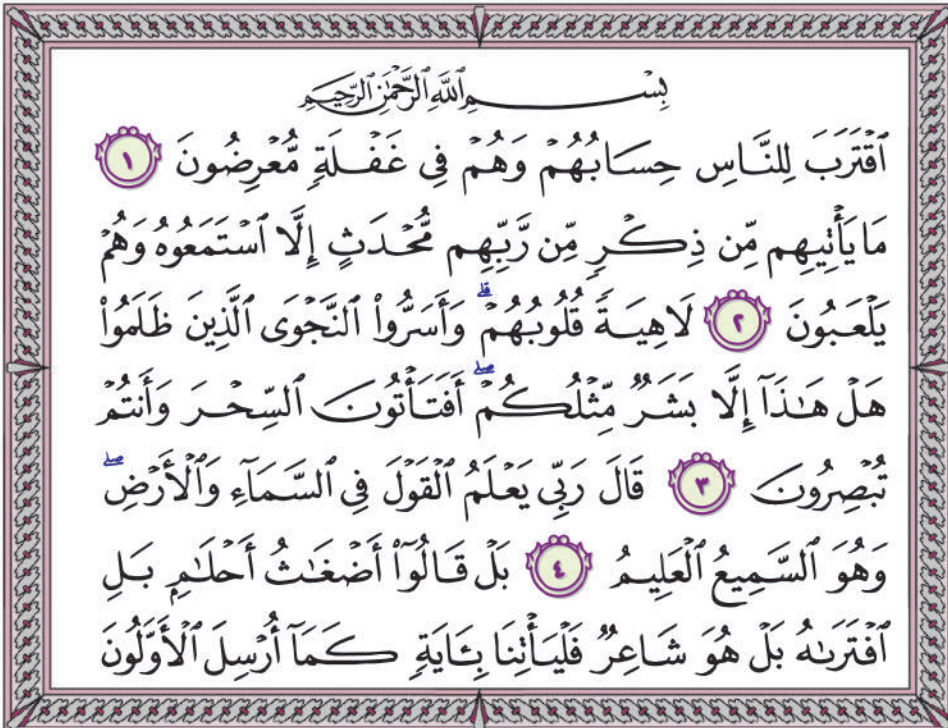 بِسْمِ ٱللَّهِ ٱلرَّحْمَٰنِ ٱلرَّحِيمِ
ٱقْتَرَبَ لِلنَّاسِ حِسَابُهُمْ وَهُمْ فِى غَفْلَةٍ مُّعْرِضُونَ ١
مَا يَأْتِيهِم مِّن ذِكْرٍ مِّن رَّبِّهِم مُّحْدَثٍ إِلَّا ٱسْتَمَعُوهُ وَهُمْ
يَلْعَبُونَ ٢ لَاهِيَةً قُلُوبُهُمْ ۗ وَأَسَرُّوا۟ ٱلنَّجْوَى ٱلَّذِينَ ظَلَمُوا۟
هَلْ هَـٰذَآ إِلَّا بَشَرٌ مِّثْلُكُمْ ۖ أَفَتَأْتُونَ ٱلسِّحْرَ وَأَنتُمْ
تُبْصِرُونَ ٣ قَالَ رَبِّى يَعْلَمُ ٱلْقَوْلَ فِى ٱلسَّمَآءِ وَٱلْأَرْضِ ۖ
وَهُوَ ٱلسَّمِيعُ ٱلْعَلِيمُ ٤ بَلْ قَالُوٓا۟ أَضْغَـٰثُ أَحْلَـٰمٍۭ بَلِ
ٱفْتَرَىٰهُ بَلْ هُوَ شَاعِرٌ فَلْيَأْتِنَا بِـَٔايَةٍ كَمَآ أُرْسِلَ ٱلْأَوَّلُونَ